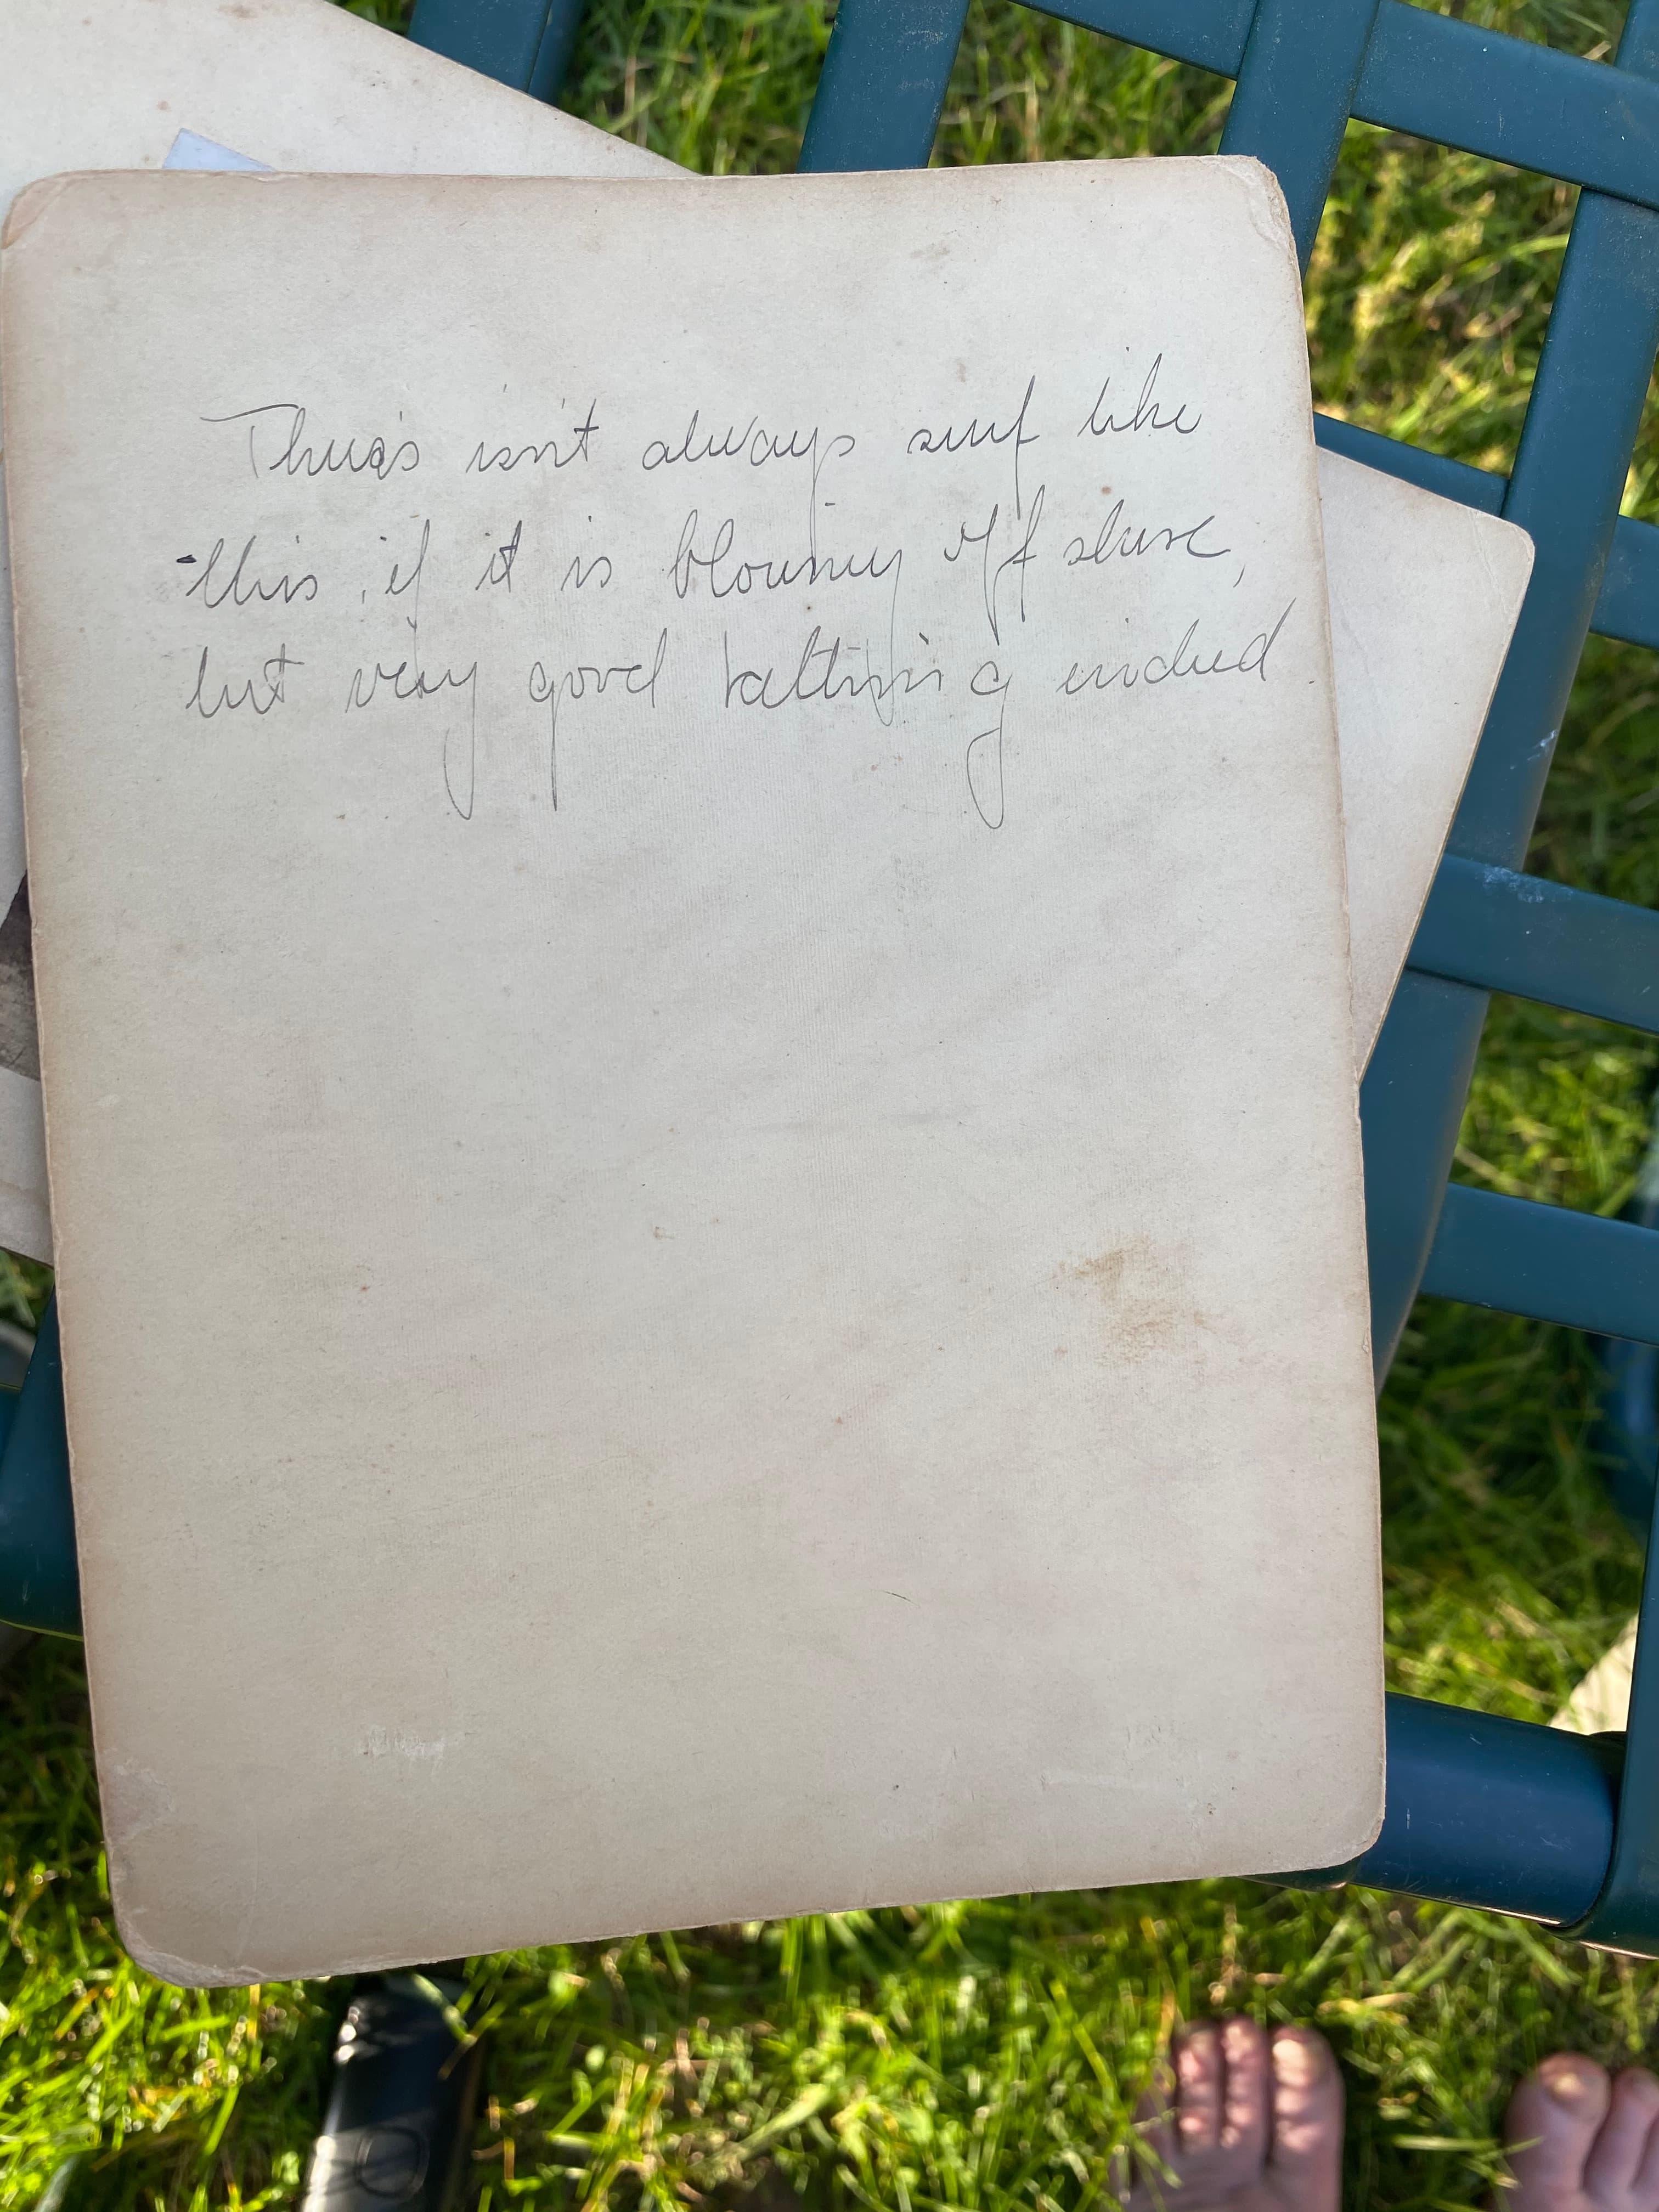 There's isn't always surf like
this, if it is blowing off shore,
but very good bathing indeed.